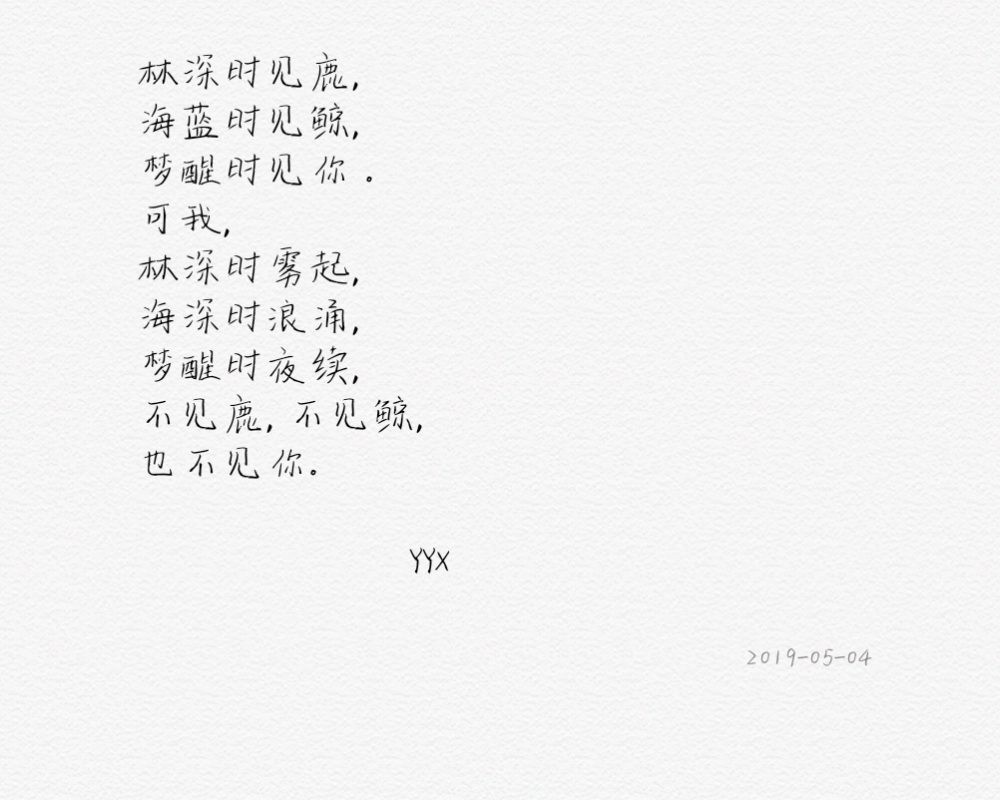 林深时见鹿,
海蓝时见鲸,
梦醒时见你。
可我,
林深时雾起,
海深时浪涌,
梦醒时夜续,
不见鹿,不见鲸,
也不见你。
YYX
2019-05-04